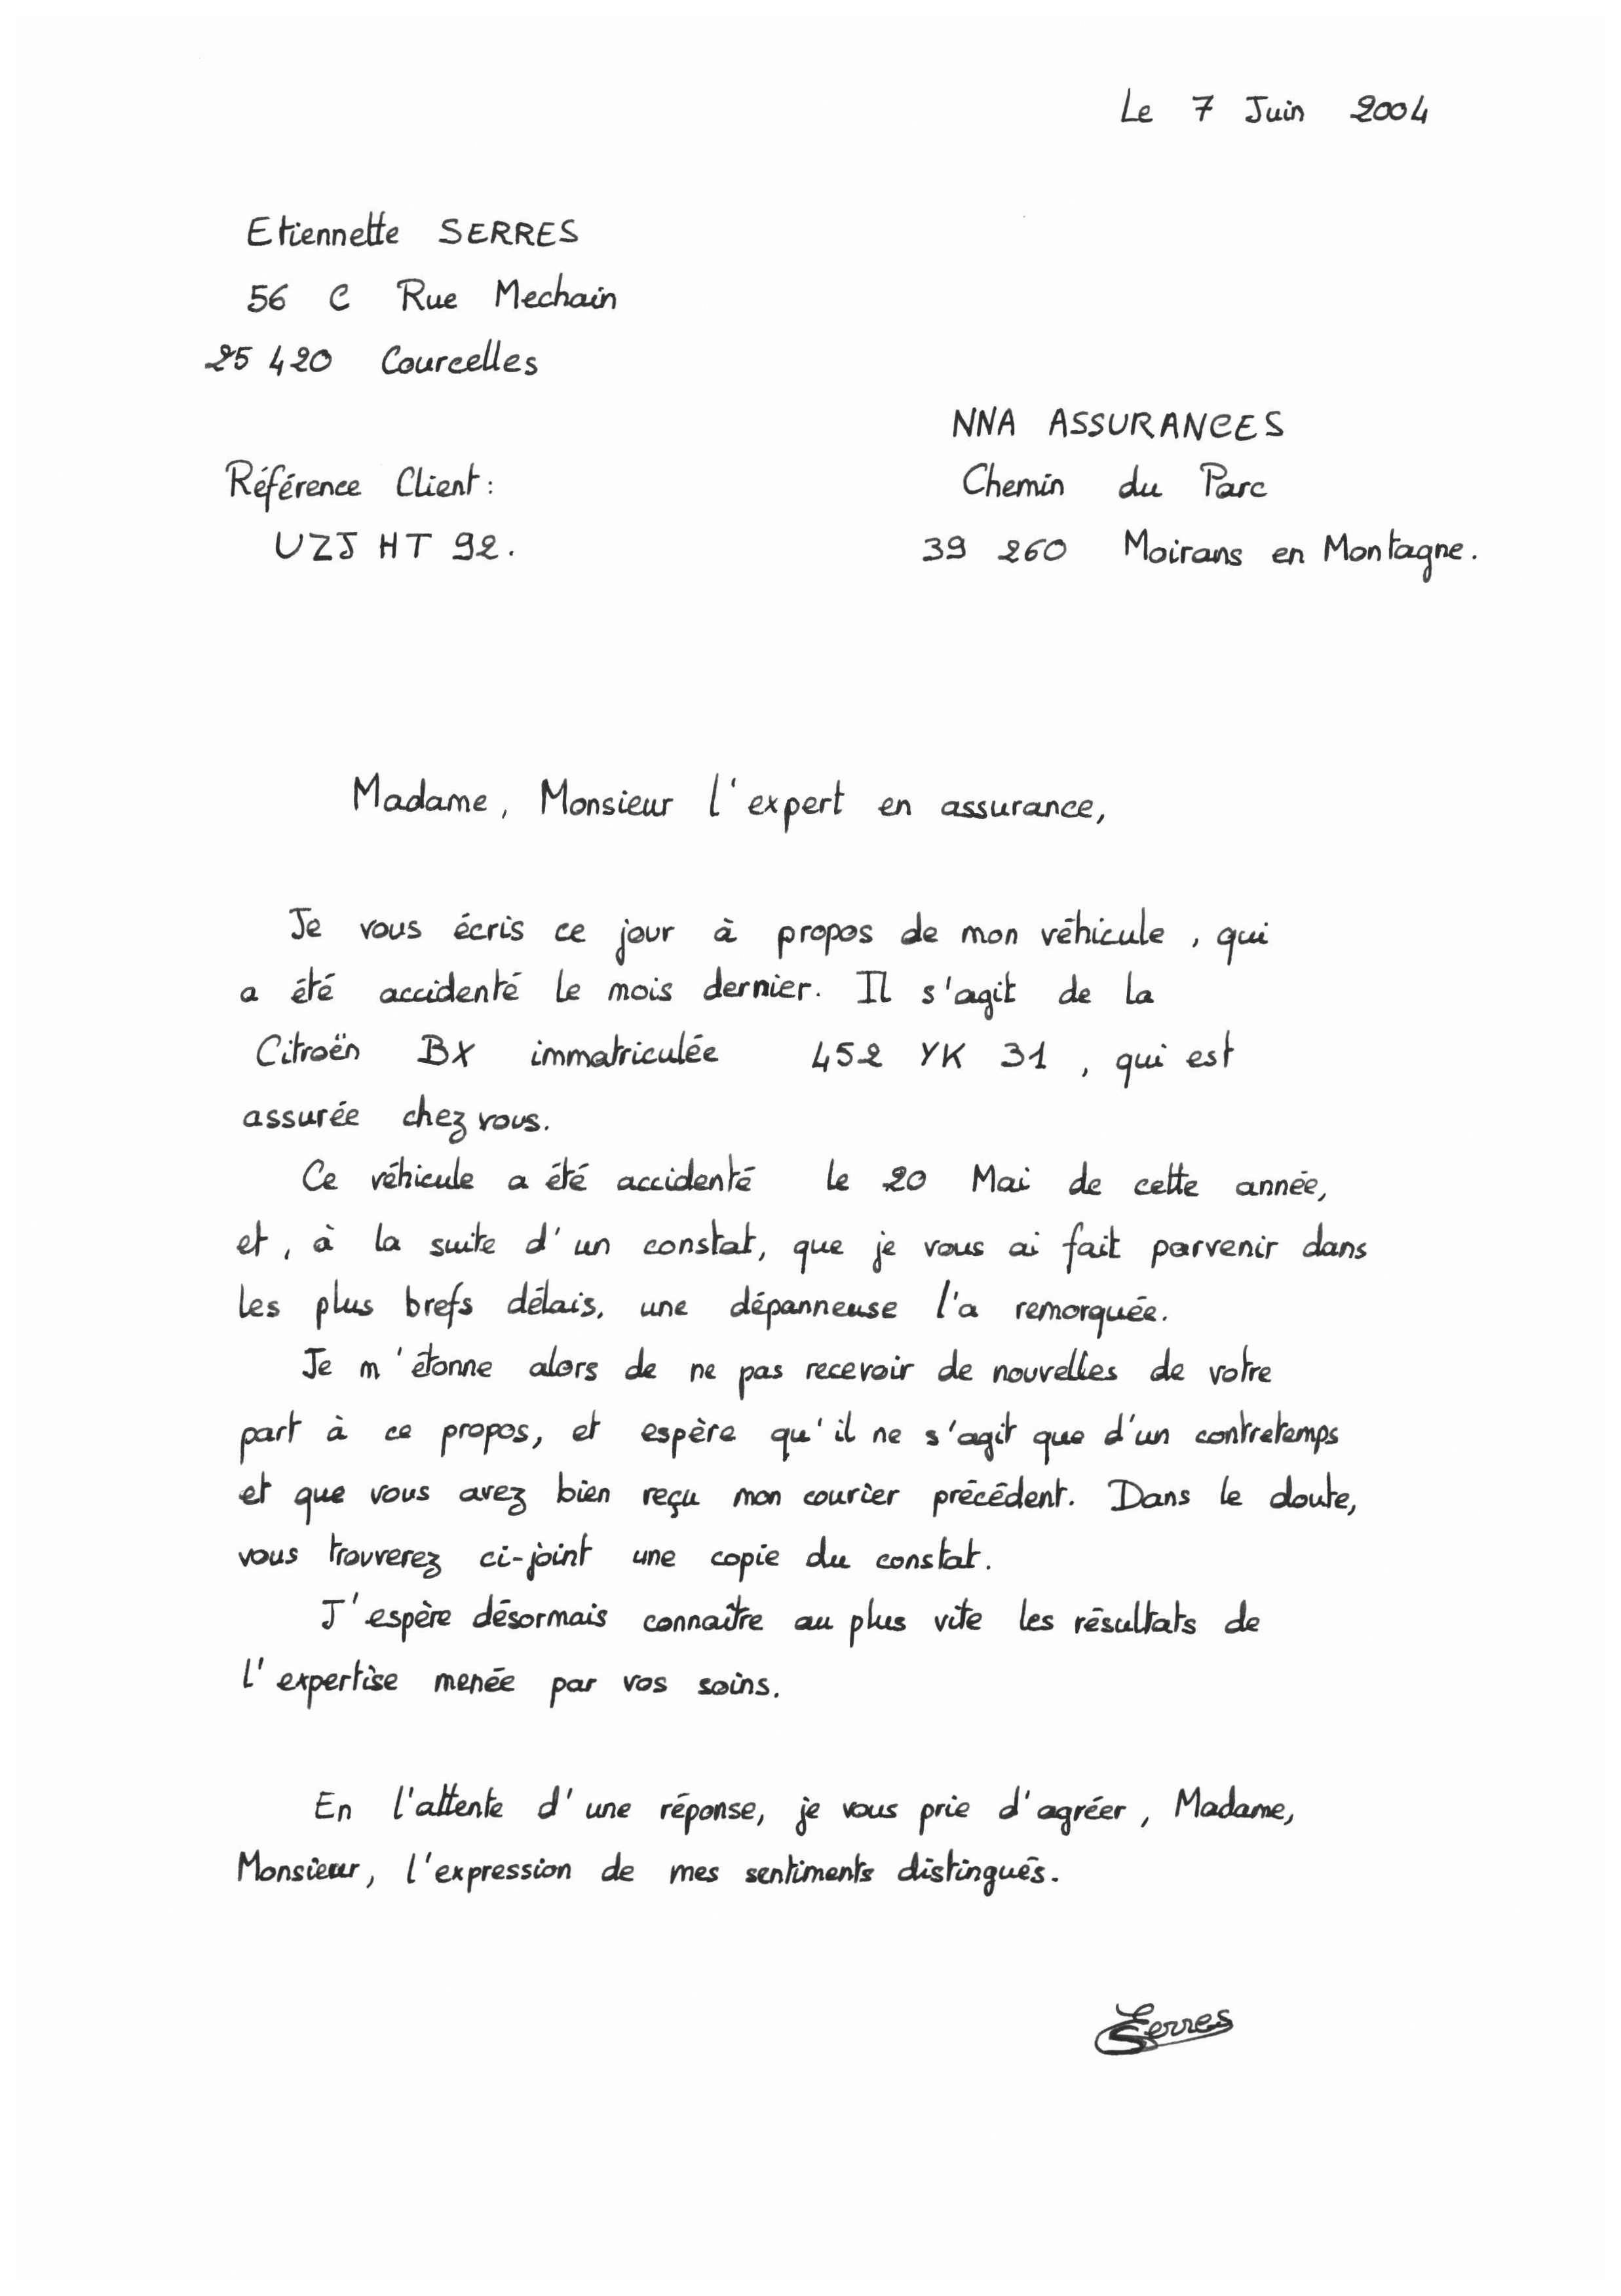 Le 7 Juin 2004
Etiennette SERRES
56 C Rue Mechain
25 420 Courcelles
NNA ASSURANCES
Référence Client :
Chemin du Parc
UZJ HT 92.
39 260 Moirans en Montagne.
Madame, Monsieur l'expert en assurance,
Je vous écris ce jour à propos de mon véhicule, qui
a été accidenté le mois dernier. Il s'agit de la
Citroën BX immatriculée 452 YK 31, qui est
assurée chez vous.
Ce véhicule a été accidenté le 20 Mai de cette année,
et, à la suite d'un constat, que je vous ai fait parvenir dans
les plus brefs délais, une dépanneuse l'a remorquée.
Je m'étonne alors de ne pas recevoir de nouvelles de votre
part à ce propos, et espère qu'il ne s'agit que d'un contretemps
et que vous avez bien reçu mon courier précédent. Dans le doute,
vous trouverez ci-joint une copie du constat.
J'espère désormais connaître au plus vite les résultats de
l'expertise menée par vos soins.
En l'attente d'une réponse, je vous prie d'agréer, Madame,
Monsieur, l'expression de mes sentiments distingués.
Serres